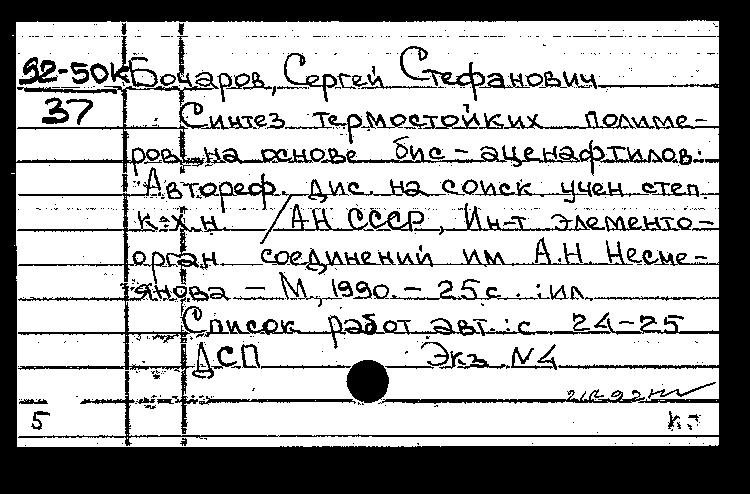 92-50к Бочаров, Сергей Стефанович
37 Синтез термостойких полиме-
ров на основе бис-аценафтилов:
Автореф. дис. на соиск учен степ.
к.х.н. / АН СССР, Ин-т элементо-
орган. соединений им А.Н. Несме-
янова - М, 1990. - 25с. : ил
Список работ авт.: с 24-25
ДСП Экз N4
5